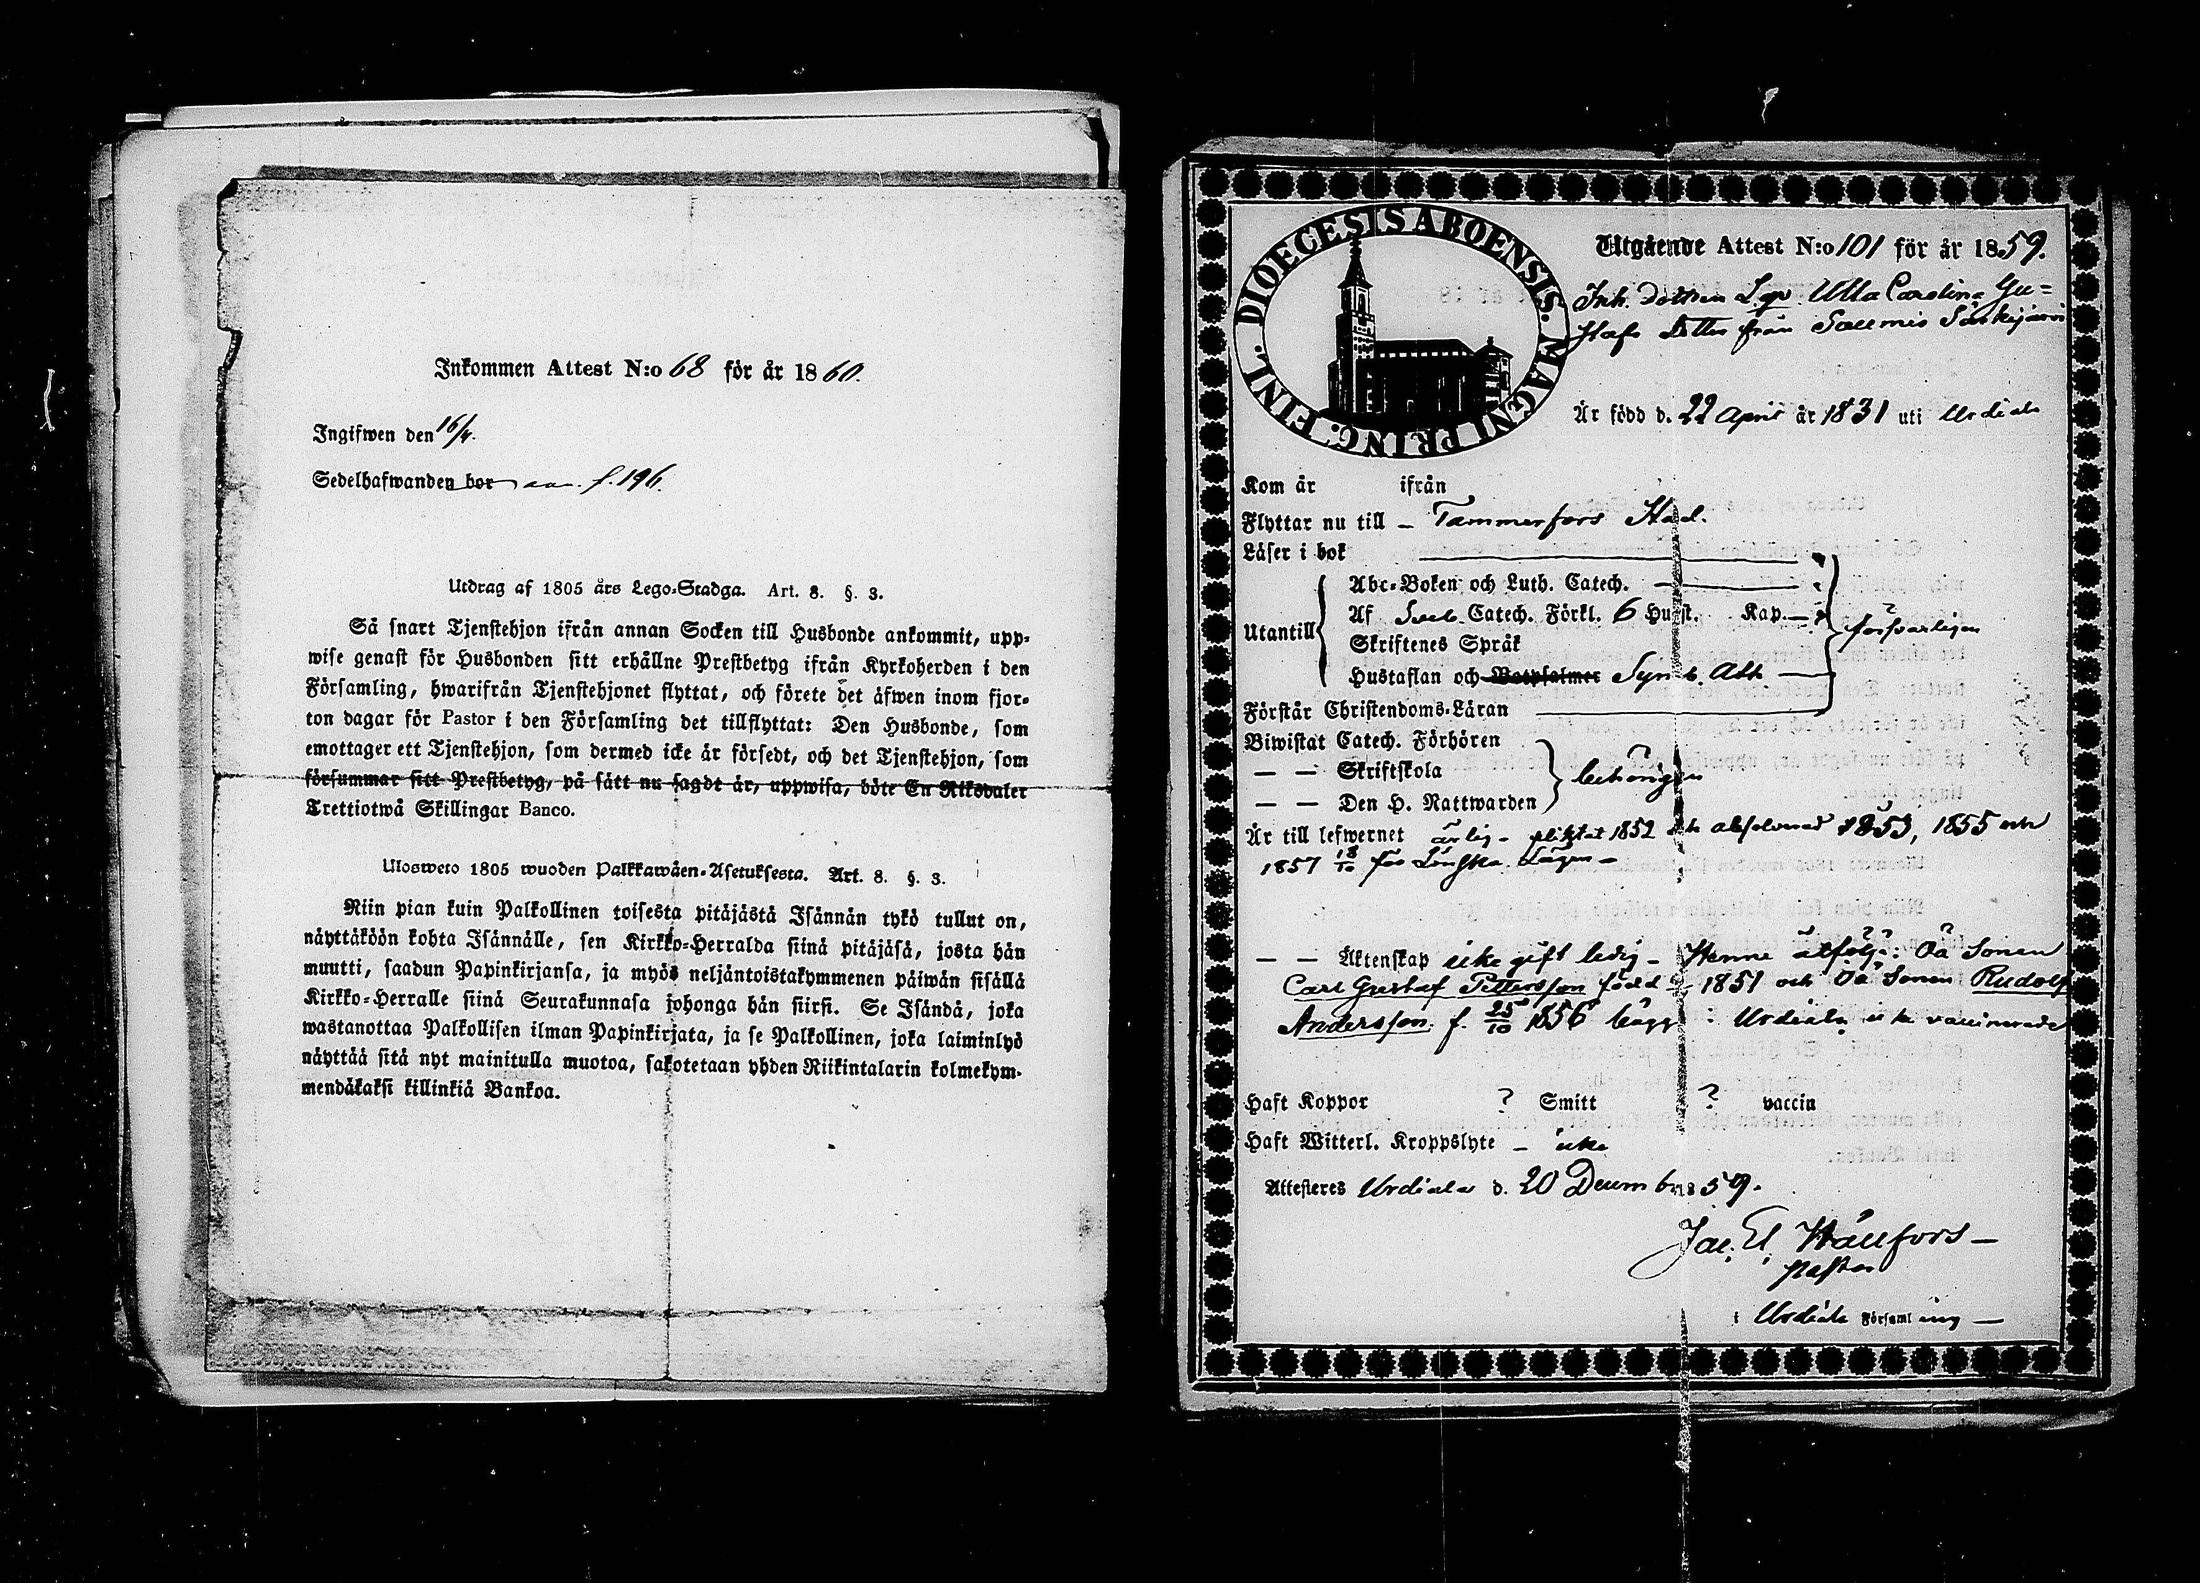 Inkommen Attest N:o 68 för år 1860.
Ingifwen den 16/4.
Sedelhafwanden bor f. 196.
Utdrag af 1805 års Lego-Stadga. Art. 8. §. 3.
Så snart Tjenstehjon ifrån annan Socken till Husbonde ankommit, upp-
wise genast för Husbonden sitt erhållne Prestbetyg ifrån Kyrkoherden i den
Församling, hwarifrån Tjenstehjonet flyttat, och förete det äfwen inom fjor-
ton dagar för Pastor i den Församling det tillflyttat: Den Husbonde, som
emottager ett Tjenstehjon, som dermed icke är försedt, och det Tjenstehjon, som
försummar sitt Prestbetyg, på sätt nu sagdt är, uppwisa, böte En Riksdaler
Trettiotwå Skillingar Banco.
Ulosweto 1805 wuoden Palkkawäen-Asetuksesta. Art. 8. §. 3.
Niin pian kuin Palkollinen toisesta pitäjästä Isännän tykö tullut on,
näyttäköön kohta Isännälle, sen Kirkko-Herralda siinä pitäjäsä, josta hän
muutti, saadun Papinkirjansa, ja myös neljäntoistakymmenen päiwän sisällä
Kirkko-Herralle siinä Seurakunnasa johonga hän siirsi. Se Isändä, joka
wastanottaa Palkollisen ilman Papinkirjata, ja se Palkollinen, joka laiminlyö
näyttää sitä nyt mainitulla muotoa, sakotetaan yhden Riikintalarin kolmekym-
mendäkaksi killinkiä Bankoa.
DIOECESIS ABOENSIS. MAGNI PRINC. FINL.
Utgående Attest N:o 101 för år 1859.
Inh. dottren Ulla Carolina Gu=
stafs dotter från Särkijärvi
Är född d. 22 April år 1831 uti Urdiala
Kom år ifrån
Flyttar nu till – Tammerfors Stad.
Läser i bok
Abc-Boken och Luth. Catech.
Utantill Af Sveb. Catech. Förkl. 6 Hufst. Kap. försvarligen
Skriftenes Språk
Hustaflan och Botpsalmer Symb. Ath
Förstår Christendoms-Läran
Biwistat Catech. Förhören
— — Skriftskola behörigen
— — Den H. Nattwarden
Är till lefwernet ärlig – pliktat 1852 och absolverad 1853, 1855 och
1857 18/10 för Lönska Lägen –
— — Äktenskap icke gift ledig – Henne åtfölj: Oä Sonen
Carl Gustaf Pettersson född 1851 och Oä Sonen Rudolf
Andersson f. 25/10 1856 bägge i Urdiala icke vaccinerade
Haft Koppor ? Smitt ? vaccin
Haft Witterl. Kroppslyte – icke
Attesteres Urdiala d. 20 December 1859.
Jac. El. Hällfors –
Pastor
i Urdiala Församling —